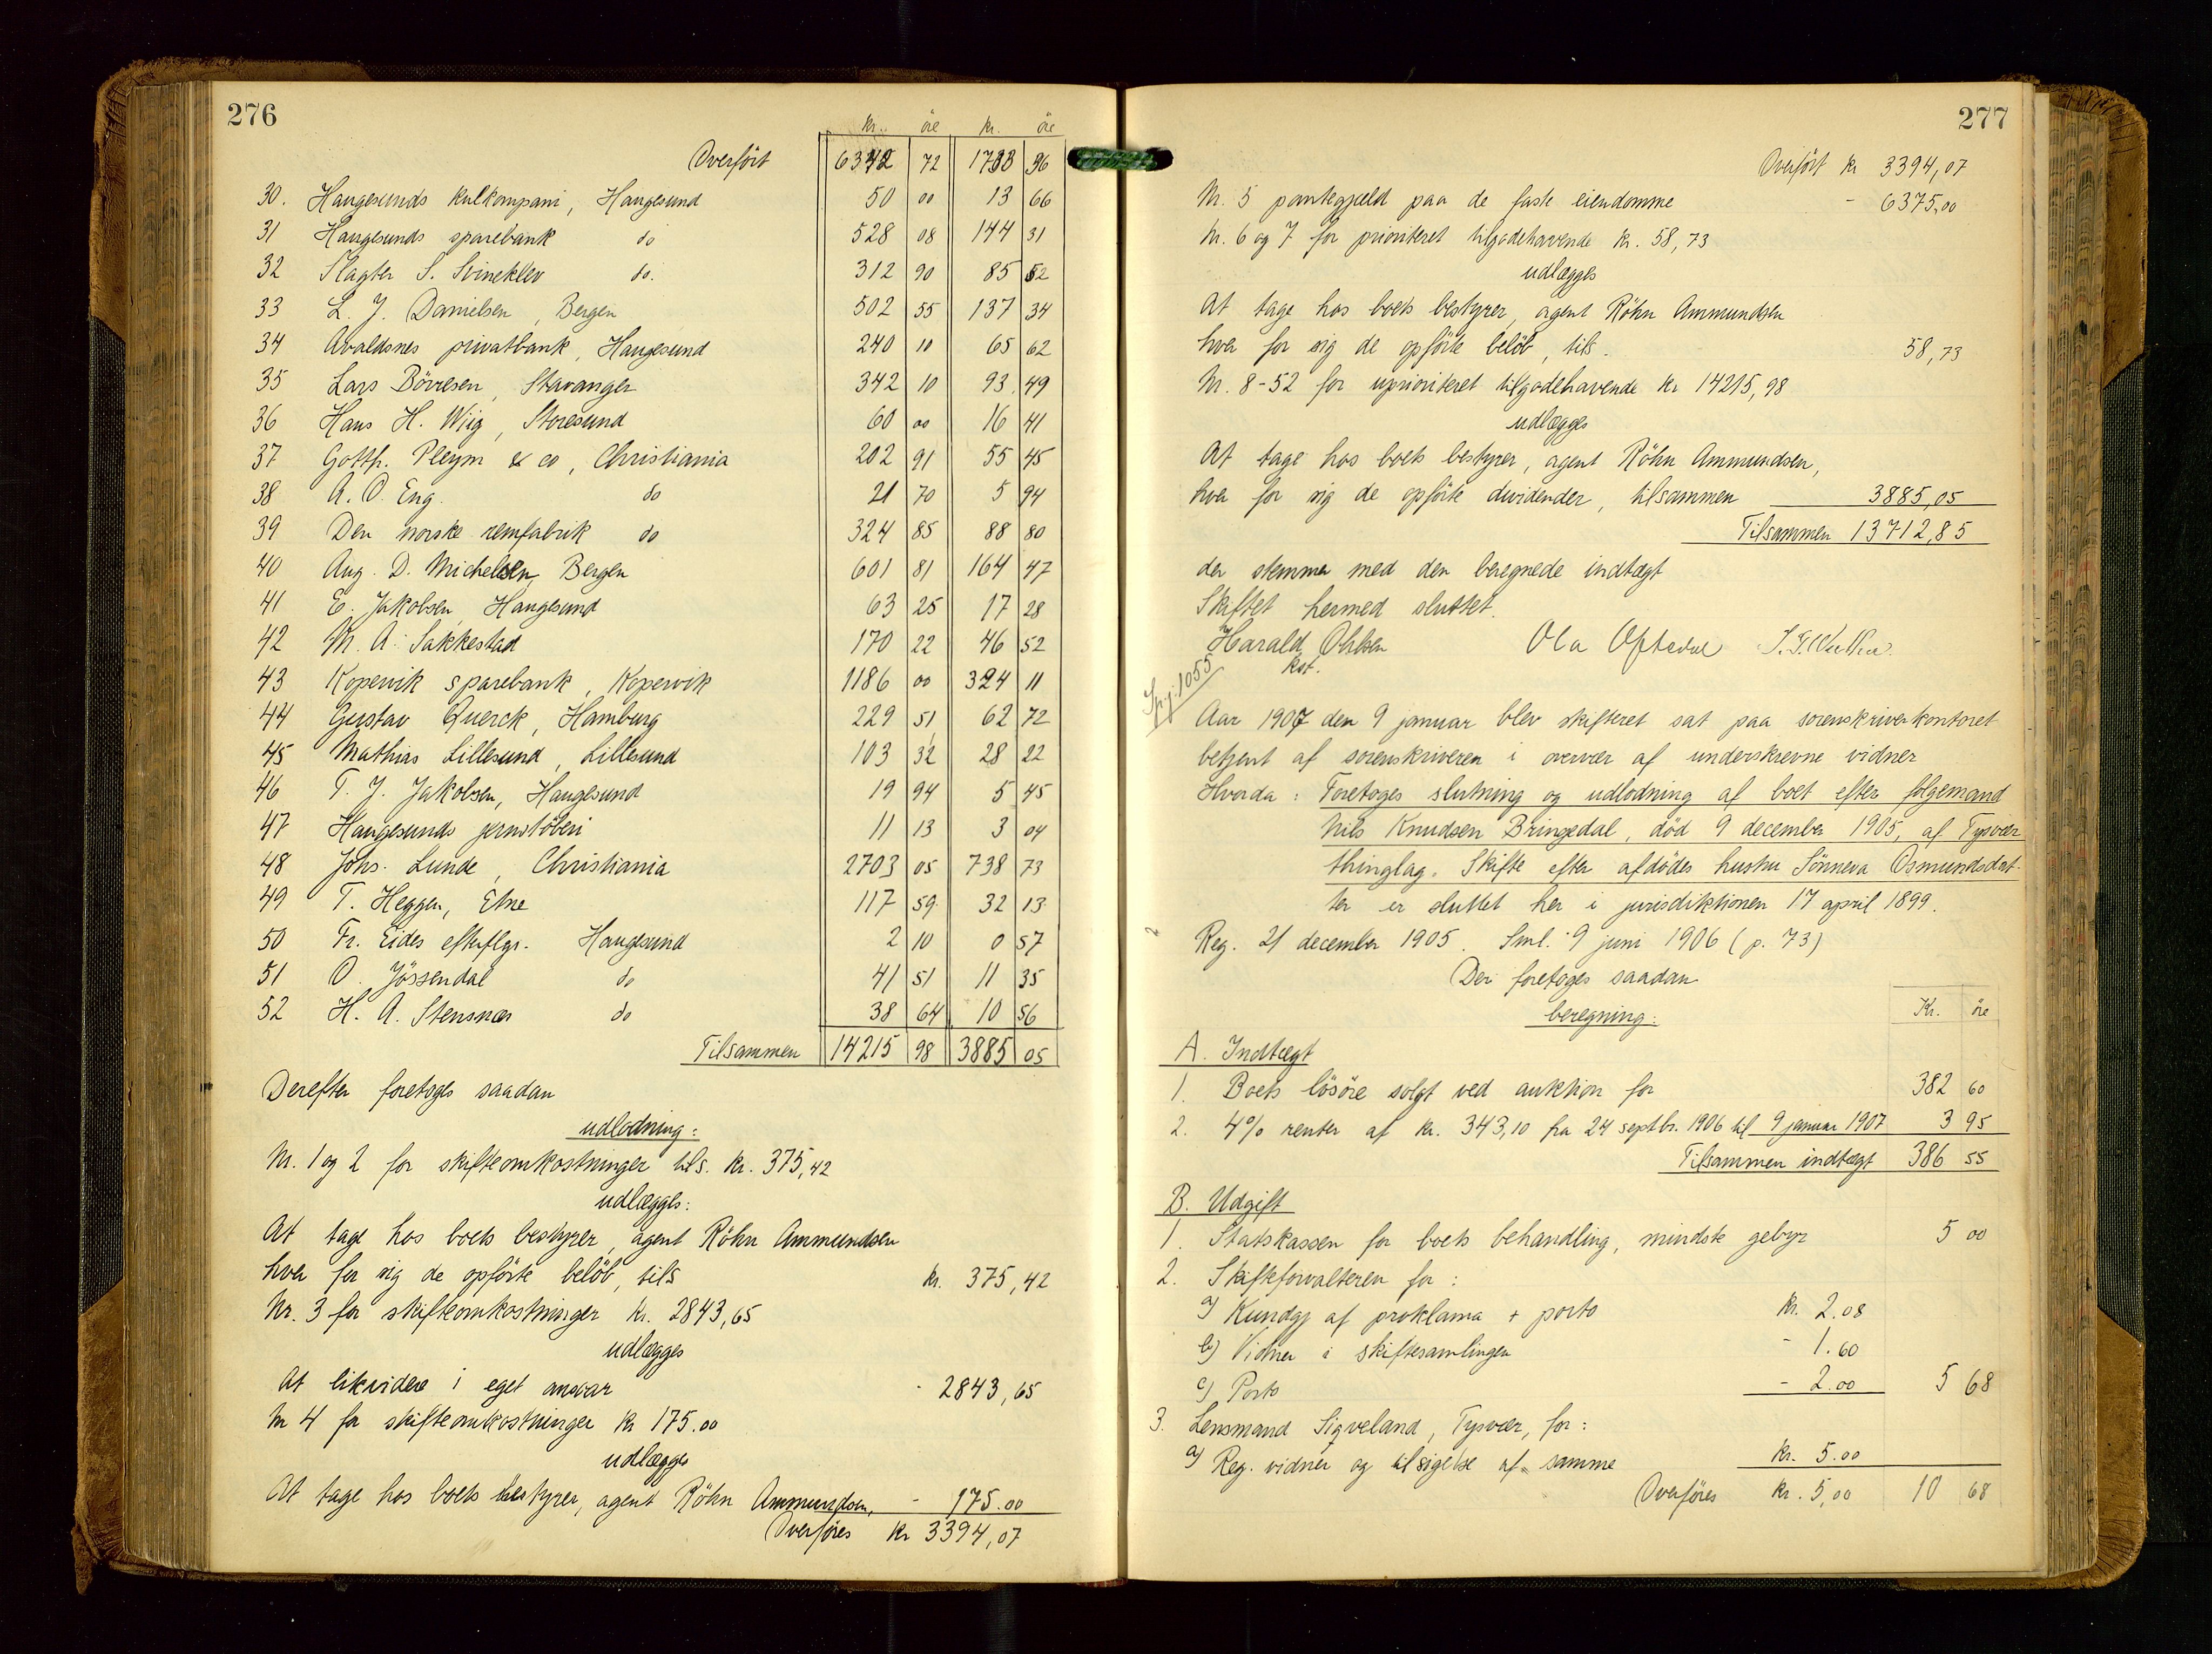 276
kr. öre kr. öre
Overført 6342 72 1733 36
30. Haugesunds kulkompani, Haugesund 50 00 13 66
31 Haugesunds sparebank do 528 08 144 31
32 Slagter S. Svineklev do. 312 90 85 52
33 L. J. Danielsen, Bergen 502 55 137 34
34 Avaldsnes privatbank, Haugesund 240 10 65 62
35 Lars Børresen, Stavanger 342 10 93 49
36 Hans H. Wiig, Storesund 60 00 16 41
37 Gottfr. Pleym & co, Christiania 202 91 55 45
38 A. O. Eng. do 21 70 5 94
39 Den norske remfabrik do 324 85 88 80
40 Aug. D. Michelsen, Bergen 601 81 164 47
41 E. Jakobsen, Haugesund 63 25 17 28
42 M. A. Sakkestad 170 22 46 52
43 Kopervik sparebank, Kopervik 1186 00 324 11
44 Gustav Querck, Hamburg 229 51 62 72
45 Mathias Lillesund, Lillesund 103 32 28 22
46 T. J. Jakobsen, Haugesund 19 94 5 45
47 Haugesunds jernstöberi 11 13 3 04
48 Johs. Lunde, Christiania 2703 05 738 73
49 T. Heggen, Etne 117 59 32 13
50 Fr. Eides efterflgr. Haugesund 2 10 0 57
51 O. Jössendal do 41 51 11 35
52 H. A. Stensnæs do 38 64 10 56
Tilsammen 14215 98 3885 05
Derefter foretages saadan
udlodning:
Nr. 1 og 2 for skifteomkostninger tils. kr. 375,42
udlægges:
At tage hos boets bestyrer, agent Röhn Ammundsen
hver for sig de opførte beløb, tils kr. 375,42
Nr. 3 for skifteomkostninger kr. 2843,65
udlægges
At likvidere i eget ansvar - 2843,65
Nr 4 for skifteomkostninger kr 175.00
udlægges
At tage hos boets bestyrer, agent Röhn Ammundsen, - 175.00
Overføres kr 3394,07
277
Overført kr 3394,07
Nr. 5 pantegjæld paa de faste eiendomme - 6375,00
Nr. 6 og 7 for prioriteret tilgodehavende kr. 58,73
udlægges
At tage hos boets bestyrer, agent Röhn Ammundsen
hver for sig de opförte belöb, tils. 58,73
Nr. 8-52 for uprioriteret tilgodehavende kr 14215,98
udlægges
At tage hos boets bestyrer, agent Röhn Ammundsen,
hver for sig de opførte dividender, tilsammen 3885,05
Tilsammen 13712,85
der stemmer med den beregnede indtægt
Skiftet hermed sluttet.
Harald Ohlsen Ola Oftedal
kst.
Spj. 1055
Aar 1907 den 9 januar blev skifteret sat paa sorenskriverkontoret
betjent af sorenskriveren i overvær af underskrevne vidner
Hvorda: Foretoges slutning og udlodning af boet efter følgemand
Nils Knudsen Bringedal, död 9 december 1905, af Tysvær
thinglag. Skifte efter afdödes hustru Sönneva Osmundsdat-
ter er sluttet her i jurisdiktionen 17 april 1899.
Reg. 21 december 1905. Sml. 9 juni 1906 (p. 73)
Der foretoges saadan
beregning:
Kr. öre
A. Indtægt
1. Boets lösöre solgt ved auktion for 382 60
2. 4% renter af kr. 343,10 fra 24 septbr. 1906 til 9 januar 1907 3 95
Tilsammen indtægt 386 55
B. Udgift
1. Statskassen for boets behandling, mindste gebyr 5 00
2. Skifteforvalteren for:
a) Kundgj af proklama + porto kr. 2.08
b) Vidner i skiftesamlingen - 1.60
c) Porto - 2.00 5 68
3. Lensmand Sigveland, Tysvær, for:
a) Reg. vidner og tilsigelse af samme kr. 5.00
Overføres kr. 5,00 10 68